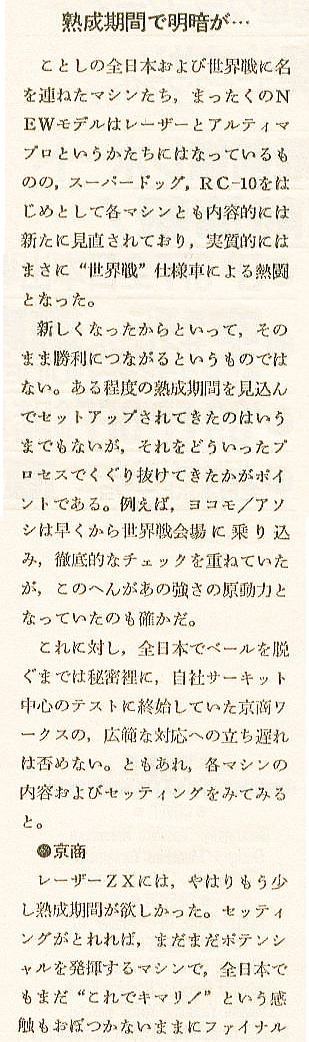 熟成期間で明暗が…
ことしの全日本および世界戦に名
を連ねたマシンたち，まったくのN
EWモデルはレーザーとアルティマ
プロというかたちにはなっているも
のの，スーパードッグ，RC-10をは
じめとして各マシンとも内容的には
新たに見直されており，実質的には
まさに“世界戦”仕様車による熱闘
となった。
新しくなったからといって，その
まま勝利につながるというものでは
ない。ある程度の熟成期間を見込ん
でセットアップされてきたのはいう
までもないが，それをどういったプ
ロセスでくぐり抜けてきたかがポイ
ントである。例えば，ヨコモ／アソ
シは早くから世界戦会場に乗り込
み，徹底的なチェックを重ねていた
が，このへんがあの強さの原動力と
なっていたのも確かだ。
これに対し，全日本でベールを脱
ぐまでは秘密裡に，自社サーキット
中心のテストに終始していた京商ワ
ークスの，広範な対応への立ち遅れ
は否めない。ともあれ，各マシンの
内容およびセッティングをみてみる
と。
●京商
レーザーZXには，やはりもう少
し熟成期間が欲しかった。セッティ
ングがとれれば，まだまだポテンシ
ャルを発揮するマシンで，全日本で
もまだ“これでキマリ！”という感
触もおぼつかないままにファイナル